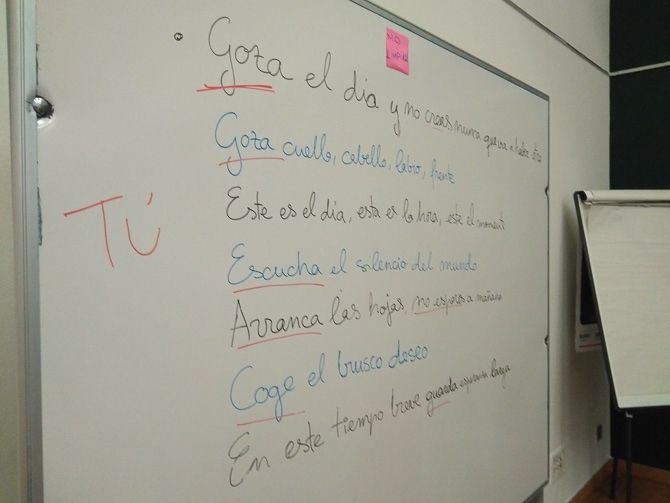 NO
LIMPIAR
Goza el dia y no creas nunca que va a haber otro
Goza cuello, cabello, labio, frente
Este es el dia, esta es la hora, este el moment
Escucha el silencio del mundo
Arranca las hojas, no esperes a mañana
Coge el brusco deseo
En este tiempo breve guarda esperanza larga
TÚ